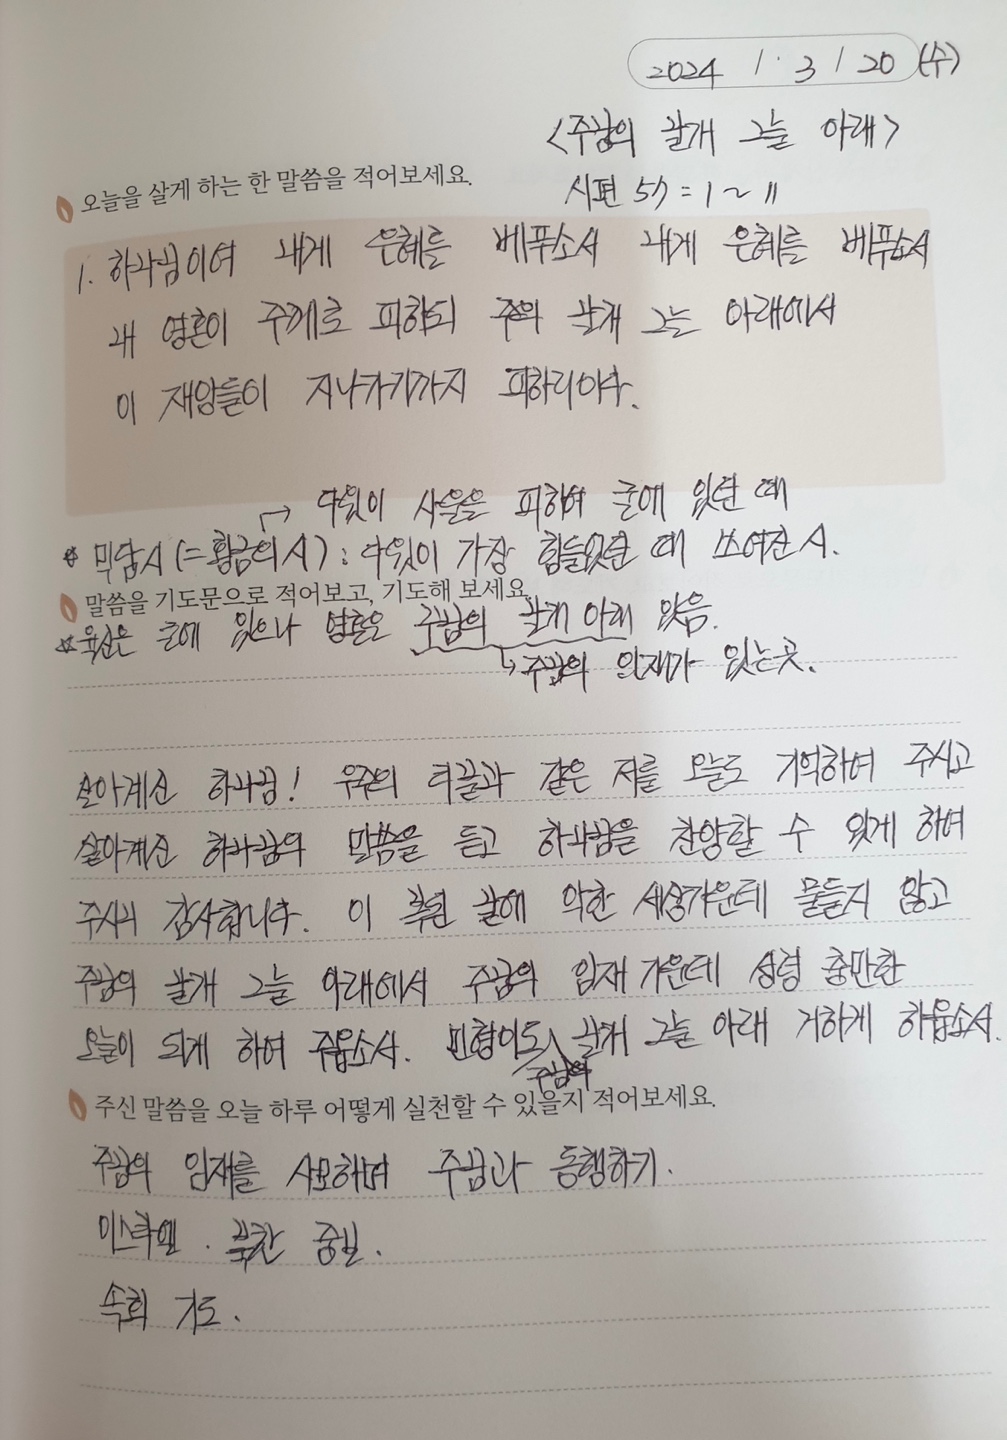 2024 / 3 / 20 (수)
<주님의 날개 그늘 아래>
오늘을 살게 하는 한 말씀을 적어보세요.
시편 57 = 1 ~ 11
1. 하나님이여 내게 은혜를 베푸소서 내게 은혜를 베푸소서
내 영혼이 주께로 피하되 주의 날개 그늘 아래에서
이 재앙들이 지나가기까지 피하리이다.
→ 다윗이 사울을 피하여 굴에 있던 때
* 믹담시 (=황금의 시) : 다윗이 가장 힘들었던 때 쓰여진 시.
말씀을 기도문으로 적어보고, 기도해 보세요.
* 육신은 굴에 있으나 영혼은 주님의 날개 아래 있음.
↳ 주님의 임재가 있는 곳.
살아계신 하나님! 우주의 티끌과 같은 저를 오늘도 기억하여 주시고
살아계신 하나님의 말씀을 듣고 하나님을 찬양할 수 있게 하여
주시니 감사합니다. 이 복된 날에 악한 세상가운데 물들지 않고
주님의 날개 그늘 아래에서 주님의 임재 가운데 성령 충만한
오늘이 되게 하여 주옵소서. 민형이도 주님의 날개 그늘 아래 거하게 하옵소서.
주신 말씀을 오늘 하루 어떻게 실천할 수 있을지 적어보세요.
주님의 임재를 사모하며 주님과 동행하기.
이스라엘. 북한 중보.
속회 기도.